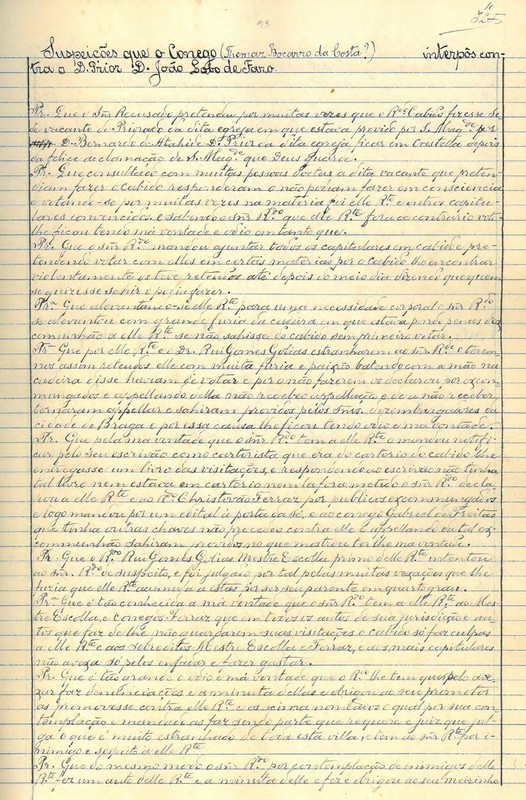 Suspeições que o Conego (Themaz Bocarro da Costa?) interpôs con-
tra o D. Prior D. João Lobo de Faro.
Pr. Que o Snr Recusado pretendeu por muitas vezes que o Rdo Cabido fizesse Sé-
de vacante do Priorado da dita egreja em que estava provido por S. Magde por
D. Bernardo de Athaide D. Prior da dita egreja ficar em Castella depois
da felice acclamação de S. Magde que Deus Guarde.
Pr. Que consultado com muitas pessoas doctas a dita vacante que preten-
diam fazer o cabido responderam o não podiam fazer em consciencia
e votando-se por muitas vezes na materia foi elle Rte e outros capitu-
lares convencidos e sabendo o snr Rdo que elle Rte fora do contrario voto
lhe ficou tendo má vontade e odio emtanto que.
Pr. Que o snr Rdo mandou ajuntar todos os capitulares em cabido e pre-
tendendo votar com elles em certas materias por o cabido lho encontrar
violentamente os teve retendos até depois do meio dia dizendo que quem
se quizesse sahir o podia fazer.
Pr. Que alevantando-se elle Rte para uma necessidade corporal o snr Rdo
se alevantou com grande furia da cadeira em que estava pondo penas de ex-
communhão a elle Rte se não sahisse do cabido sem primeiro votar.
Pr. Que por elle Rte e o Dr. Rui Gomes Golias estranharem ao snr Rdo o ter-
nos assim retendos elle com muita furia e paixão batendo com a mão na
cadeira disse haviam de votar e por o não fazerem os declarou por excom-
mungados e appellando della não recebeu appellação e de a não receber
tornaram appellar e sahiram providos pelos snrs. desembargadores da
cidade de Braga e por essa causa lhe ficou tendo odio e má vontade.
Pr. Que pela má vontade que o snr Rdo tem a elle Rte o mandou notifi-
car pelo seu escrivão como cartorista que era do cartorio do cabido lhe
entregasse um livro das visitações, e respondendo ao escrivão não tinha
tal livro nem estava em cartorio nem la fora metido o snr Rdo decla-
rou a elle Rte e ao Rdo Christovão Ferraz por publicos excommungados
e logo mandou por um edital á porta da sé, e ao conego Gabriel de Freitas
que tinha outras chaves não procedeu contra elle e appellando da tal ex-
communhão sahiram providos no que mostrou ter-lhe má vontade.
Pr. Que o Rdo Rui Gomes Golias Mestre Escolla primo delle Rte intentou
ao snr Rdo de suspeito, e foi julgado por tal pelas muitas vexações que lhe
fazia que elle Rte acumula a estas por ser seu parente em quarto grau.
Pr. Que é tão conhecida a má vontade que o snr Rdo tem a elle Rte, ao Mes-
tre Escolla, e Conego Ferraz que em todos os autos de sua jurisdicção e au-
tos que faz de lhe não guardarem suas visitações o cabido só faz culpas
a elle Rte e aos sobreditos Mestre Escolla e Ferraz, e aos mais capitulares
não aviza só pelos infadar e fazer gastar.
Pr. Que é tão grande o odio e má vontade que o Rdo lhe tem que pelo ave-
xar faz denunciações e a minuta dellas e obriga ao seu promotor
as promovesse contra elle Rte e os acima nomeados o qual por sua con-
templação e mandado as faz sendo parte que requere e juiz que jul-
ga o que é muito estranhado de toda esta villa, e tem ao snr Rte por i-
nimigo e suspeito a elle Rte.
Pr. Que do mesmo modo o snr Rdo por contemplação de inimigos delle
Rte fez um auto delle Rte e a minuta delle e fez e obrigou ao seu meirinho